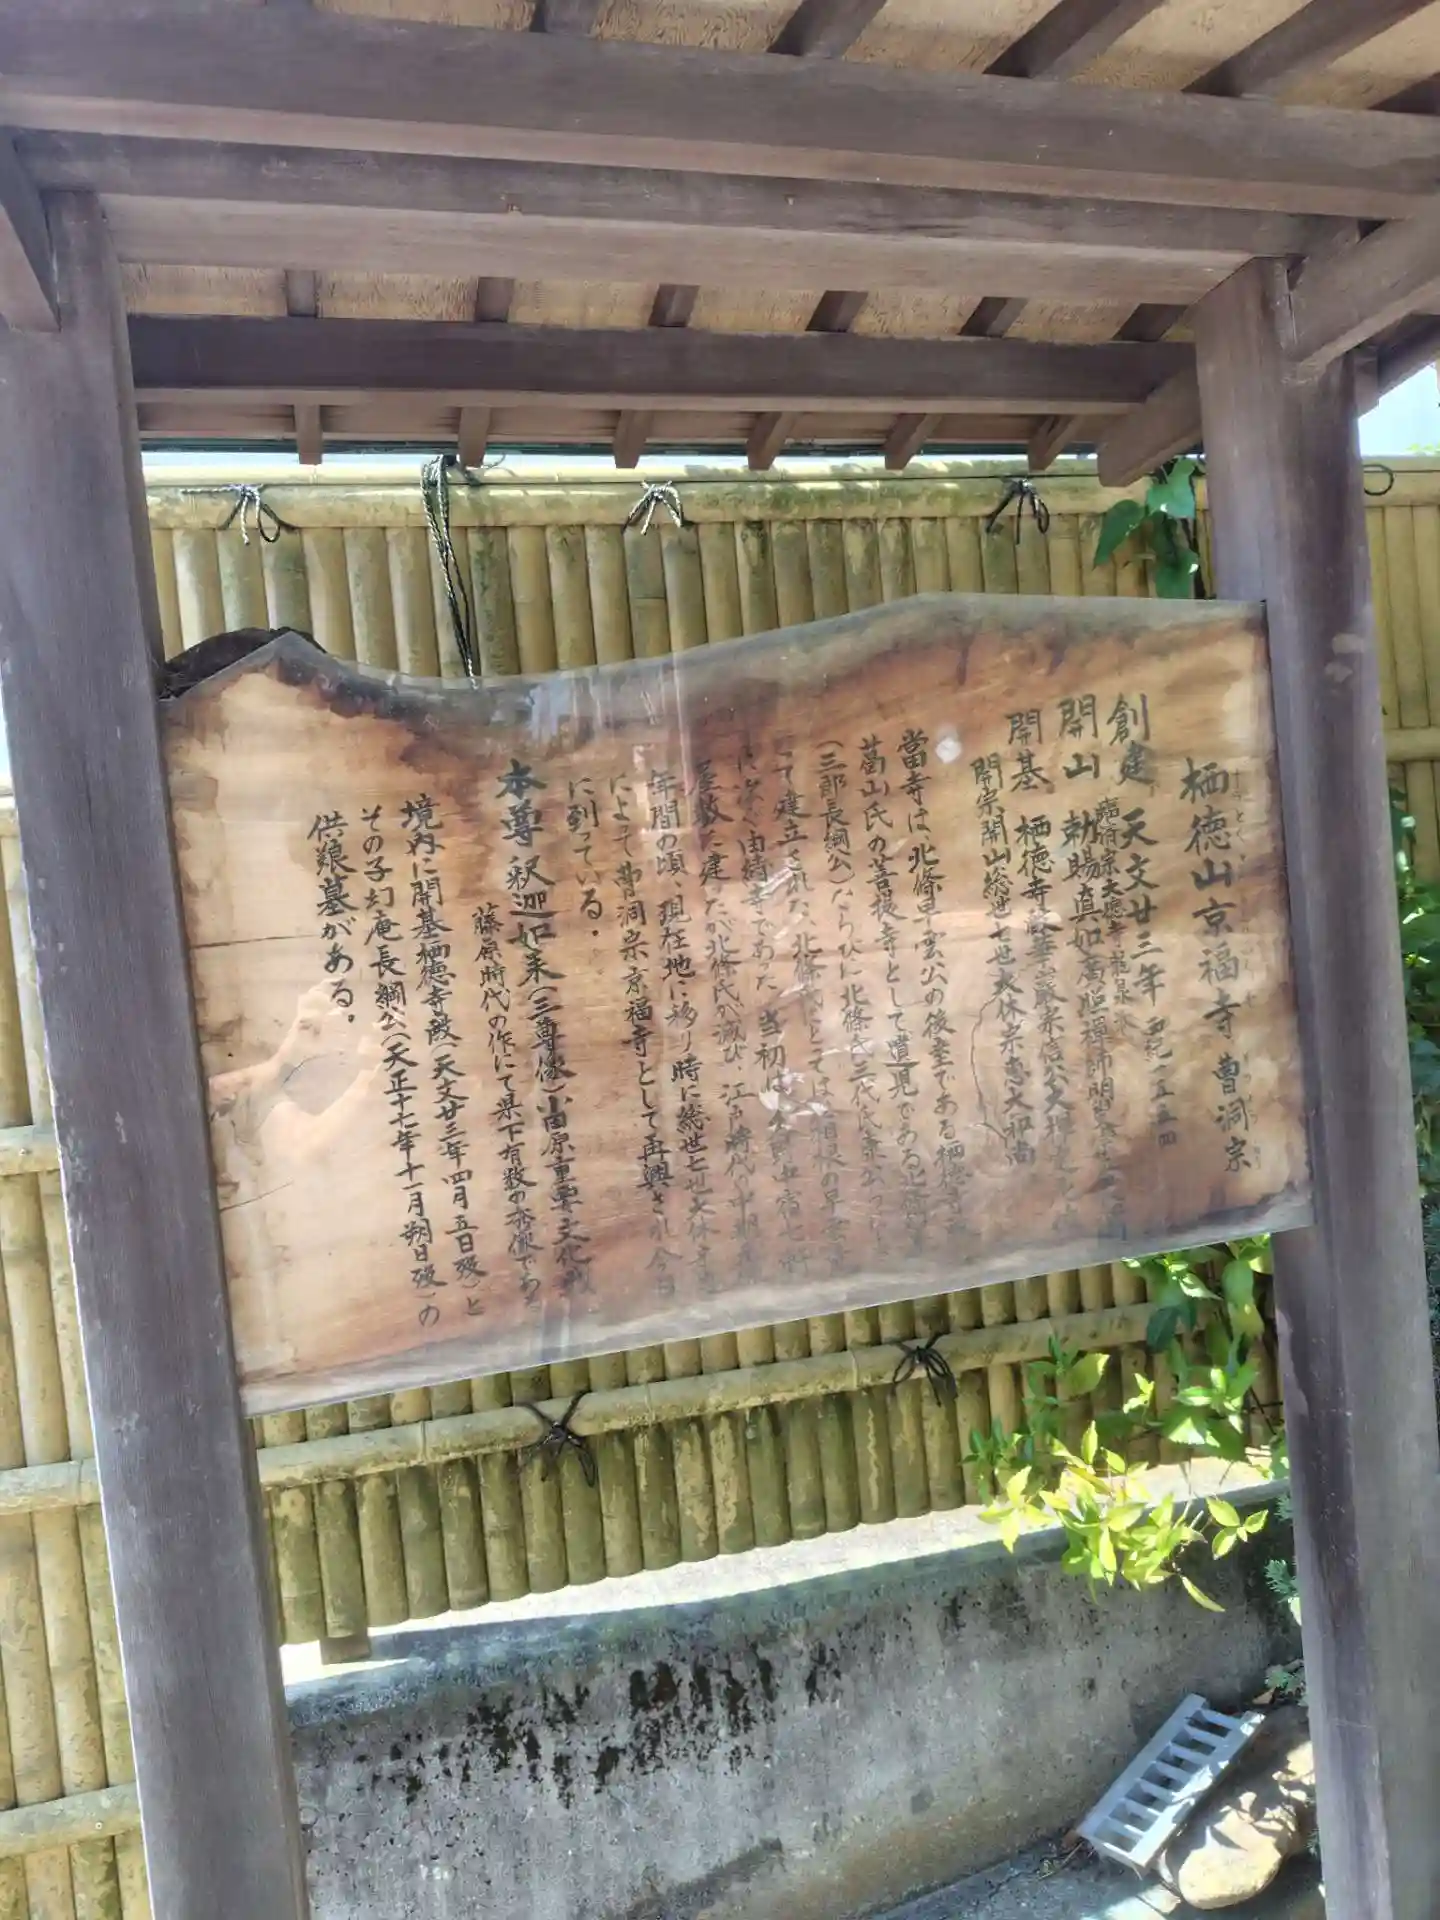 栖徳山京福寺 曹洞宗
創建 天文廿三年 西紀一五五四
開山 勅賜真如廣照禅師明叟
開基 栖徳寺殿華巌宗信公大禅定
開宗開山総世七世大休宗恵大和尚
當寺は、北條早雲公の後室である栖徳寺殿
葛山氏の菩提寺として遺児である北條
(三郎長綱公)ならびに北條氏三代氏康公
って建立された、北條氏にとっては箱根の早雲寺
に次ぐ由緒寺であった 当初は
屋敷に建ったが北條氏が滅び、江戸時代の中期
年間の頃、現在地に移り時に総世七世大休
によって曹洞宗京福寺として再興され今日
に到っている.
本尊 釈迦如来(三尊像)小田原重要文化
藤原時代の作にて県下有数の秀像である
境内に開基栖徳寺殿(天文廿三年四月五日殁)と
その子幻庵長綱公(天正十七年十一月朔日殁)の
供養墓がある.